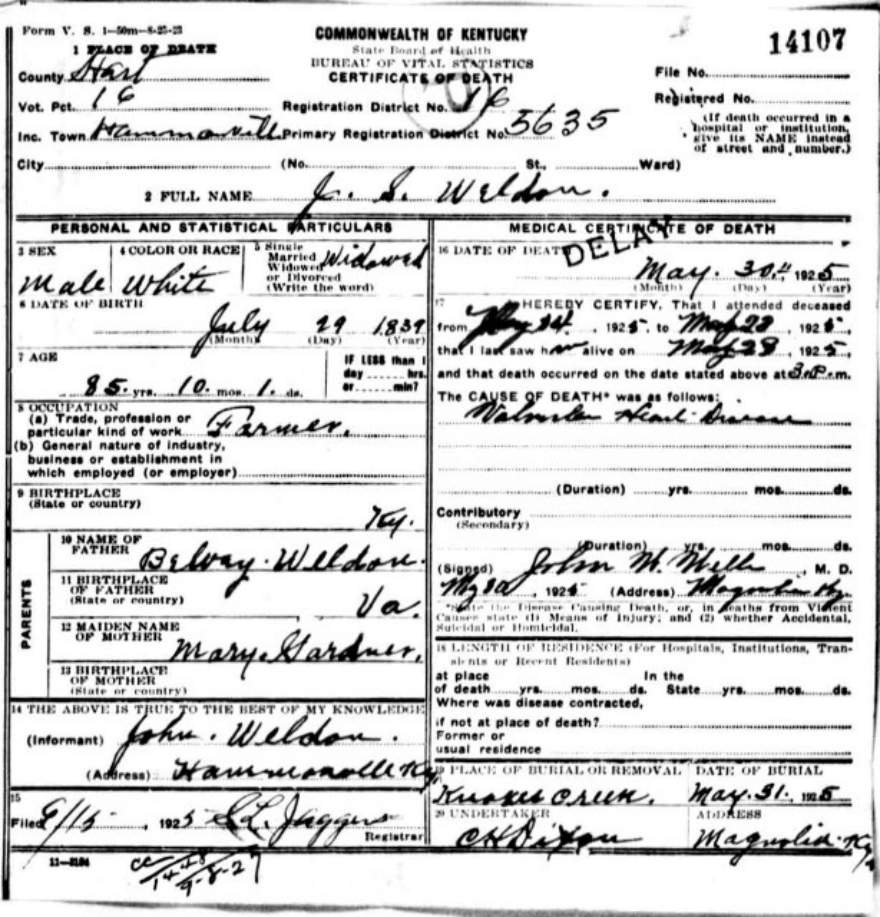 Form V. S. 1—50m—8-25-23
COMMONWEALTH OF KENTUCKY
State Board of Health
BUREAU OF VITAL STATISTICS
CERTIFICATE OF DEATH
14107
1 PLACE OF DEATH
County Hart
File No.
Vot. Pct. 16
Registration District No.
Registered No.
Inc. Town Hammonville
Primary Registration District No. 5635
(If death occurred in a hospital or institution, give its NAME instead of street and number.)
City (No. St., Ward)
2 FULL NAME J. S. Weldon.
PERSONAL AND STATISTICAL PARTICULARS
3 SEX
Male
4 COLOR OR RACE
White
5 Single
Married
Widowed
or Divorced
(Write the word)
Widowed
6 DATE OF BIRTH
July 29 1839
(Month) (Day) (Year)
7 AGE
85 yrs. 10 mos. 1 ds.
IF LESS than 1
day hrs.
or min?
8 OCCUPATION
(a) Trade, profession or
particular kind of work Farmer.
(b) General nature of industry,
business or establishment in
which employed (or employer)
9 BIRTHPLACE
(State or country)
Ky.
PARENTS
10 NAME OF
FATHER
Belvay Weldon.
11 BIRTHPLACE
OF FATHER
(State or country)
Va.
12 MAIDEN NAME
OF MOTHER
Mary Gardner.
13 BIRTHPLACE
OF MOTHER
(State or country)
14 THE ABOVE IS TRUE TO THE BEST OF MY KNOWLEDGE
(Informant) John. Weldon.
(Address) Hammonville Ky.
15
Filed 9/15, 1925 S.L. Jaggers
Registrar
11—3184
MEDICAL CERTIFICATE OF DEATH
DELAY
16 DATE OF DEATH
May. 30, 1925
(Month) (Day) (Year)
17 HEREBY CERTIFY, That I attended deceased
from May 24, 1925, to May 28, 1925
that I last saw him alive on May 28, 1925,
and that death occurred on the date stated above at 3 P. m.
The CAUSE OF DEATH* was as follows:
Valvular Heart Disease
(Duration) yrs. mos. ds.
Contributory
(Secondary)
(Duration) yrs. mos. ds.
(Signed) John M. , M. D.
, 1925 (Address) Magnolia Ky.
*State the Disease Causing Death, or, in deaths from Violent
Causes state (1) Means of Injury; and (2) whether Accidental,
Suicidal or Homicidal.
18 LENGTH OF RESIDENCE (For Hospitals, Institutions, Tran-
sients or Recent Residents)
at place In the
of death yrs. mos. ds. State yrs. mos. ds.
Where was disease contracted,
if not at place of death?
Former or
usual residence
19 PLACE OF BURIAL OR REMOVAL
Creek.
DATE OF BURIAL
May. 31, 1925
20 UNDERTAKER
C H Dixon
ADDRESS
Magnolia Ky